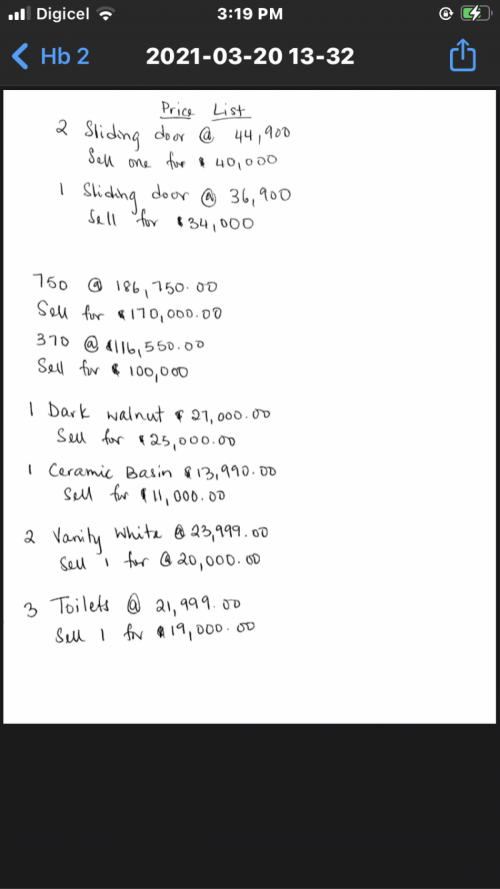 Digicel 3:19 PM
Hb 2 2021-03-20 13-32
Price List
2 Sliding door @ 44,900
Sell one for $ 40,000
1 Sliding door @ 36,900
Sell for $34,000
750 @ 186,750.00
Sell for $170,000.00
370 @ $116,550.00
Sell for $ 100,000
1 Dark walnut $ 27,000.00
Sell for $25,000.00
1 Ceramic Basin $13,990.00
Sell for $11,000.00
2 Vanity White @ 23,999.00
Sell 1 for @ 20,000.00
3 Toilets @ 21,999.00
Sell 1 for $19,000.00